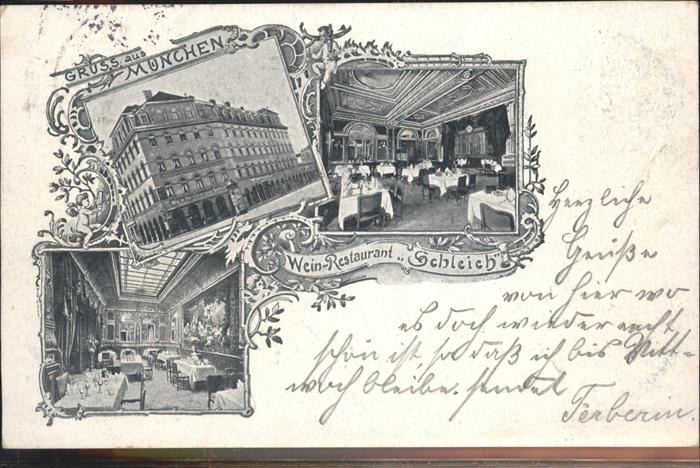 GRUSS aus
MÜNCHEN
Wein-Restaurant „Schleich"
Herzliche
Grüße
von hier wo
es doch wieder recht
schön ist, so daß ich bis Mitt-
woch bleibe. sendet